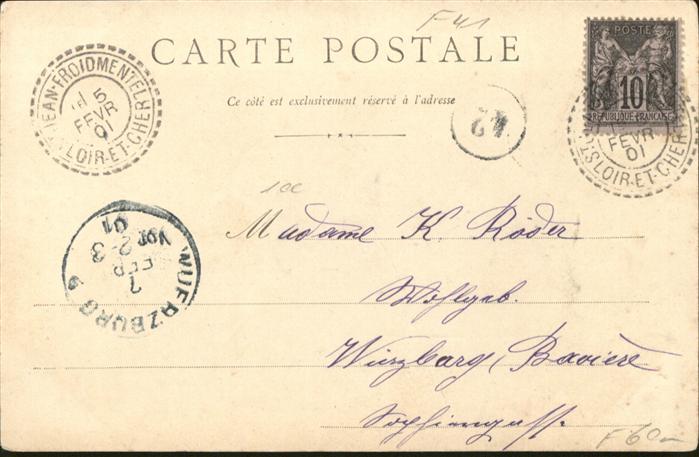 F-41
CARTE POSTALE
Ce côté est exclusivement réservé à l'adresse
POSTE
10
RÉPUBLIQUE FRANÇAISE
JEAN-FROIDMENTEL
5
FEVR
01
LOIR-ET-CHER
FEVR
01
LOIR-ET-CHER
42
WUERZBURG
7
FEB
2-3
Vor
01
100
Madame K. Röder
Wohlgeb.
Würzburg, Bavière
Sophiengasse
F60-